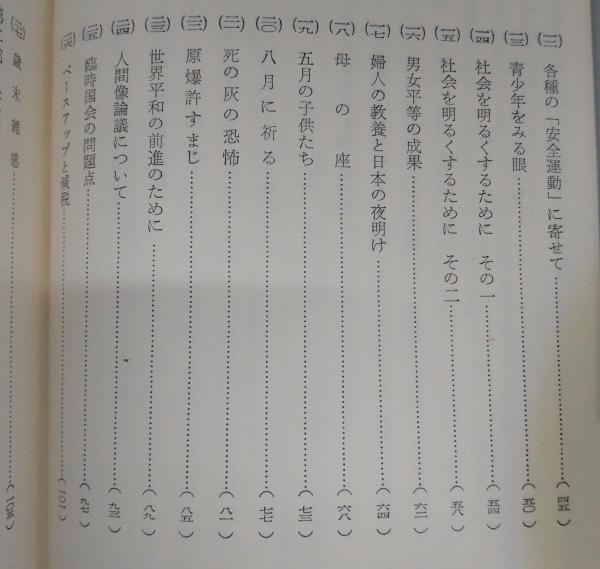 (一二) 各種の「安全運動」に寄せて……(四五)
(一三) 青少年をみる眼……(五〇)
(一四) 社会を明るくするために その一……(五四)
(一五) 社会を明るくするために その二……(五八)
(一六) 男女平等の成果……(六二)
(一七) 婦人の教養と日本の夜明け……(六四)
(一八) 母の座……(六八)
(一九) 五月の子供たち……(七三)
(二〇) 八月に祈る……(七七)
(二一) 死の灰の恐怖……(八一)
(二二) 原爆許すまじ……(八五)
(二三) 世界平和の前進のために……(八九)
(二四) 人間像論議について……(九三)
(二五) 臨時国会の問題点……(九七)
(二六) ベースアップと減税……(一〇一)
(二七) 歳末雑感……(一〇五)